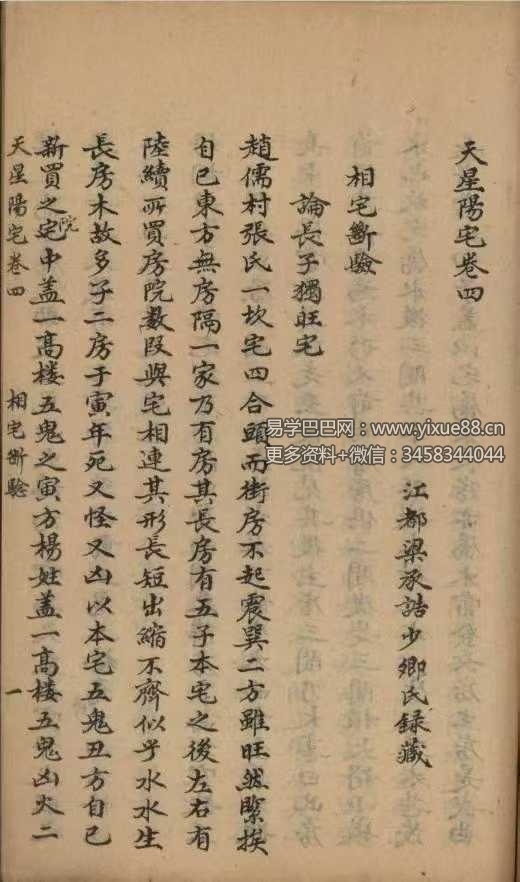 天星陽宅卷四
江都梁承誥少卿氏録藏
相宅斷驗
論長子獨旺宅
趙儒村張氏一坎宅四合頭而街房不起震巽二方雖旺然緊挨
自已東方無房隔一家乃有房其長房有五子本宅之後左右有
陸續所買房院数段與宅相連其形長短出縮不齊似乎水水生
長房木故多子二房于寅年死又怪又凶以本宅五鬼丑方自已
新買之宅院中盖一高楼五鬼之寅方楊姓盖一高楼五鬼凶火二
天星陽宅卷四
相宅斷驗
一
易学巴巴网：www.yixue88.cn
更多资料+微信：3458344044